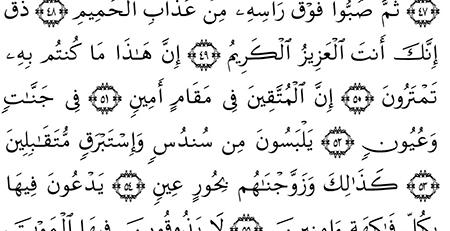 ﴿٤٧﴾ ثُمَّ صُبُّوا۟ فَوْقَ رَأْسِهِۦ مِنْ عَذَابِ ٱلْحَمِيمِ ﴿٤٨﴾ ذُقْ
إِنَّكَ أَنتَ ٱلْعَزِيزُ ٱلْكَرِيمُ ﴿٤٩﴾ إِنَّ هَـٰذَا مَا كُنتُم بِهِۦ
تَمْتَرُونَ ﴿٥٠﴾ إِنَّ ٱلْمُتَّقِينَ فِى مَقَامٍ أَمِينٍ ﴿٥١﴾ فِى جَنَّـٰتٍ
وَعُيُونٍ ﴿٥٢﴾ يَلْبَسُونَ مِن سُندُسٍ وَإِسْتَبْرَقٍ مُّتَقَـٰبِلِينَ
﴿٥٣﴾ كَذَٰلِكَ وَزَوَّجْنَـٰهُم بِحُورٍ عِينٍ ﴿٥٤﴾ يَدْعُونَ فِيهَا
بِكُلِّ فَـٰكِهَةٍ ءَامِنِينَ ﴿٥٥﴾ لَا يَذُوقُونَ فِيهَا ٱلْمَوْتَ